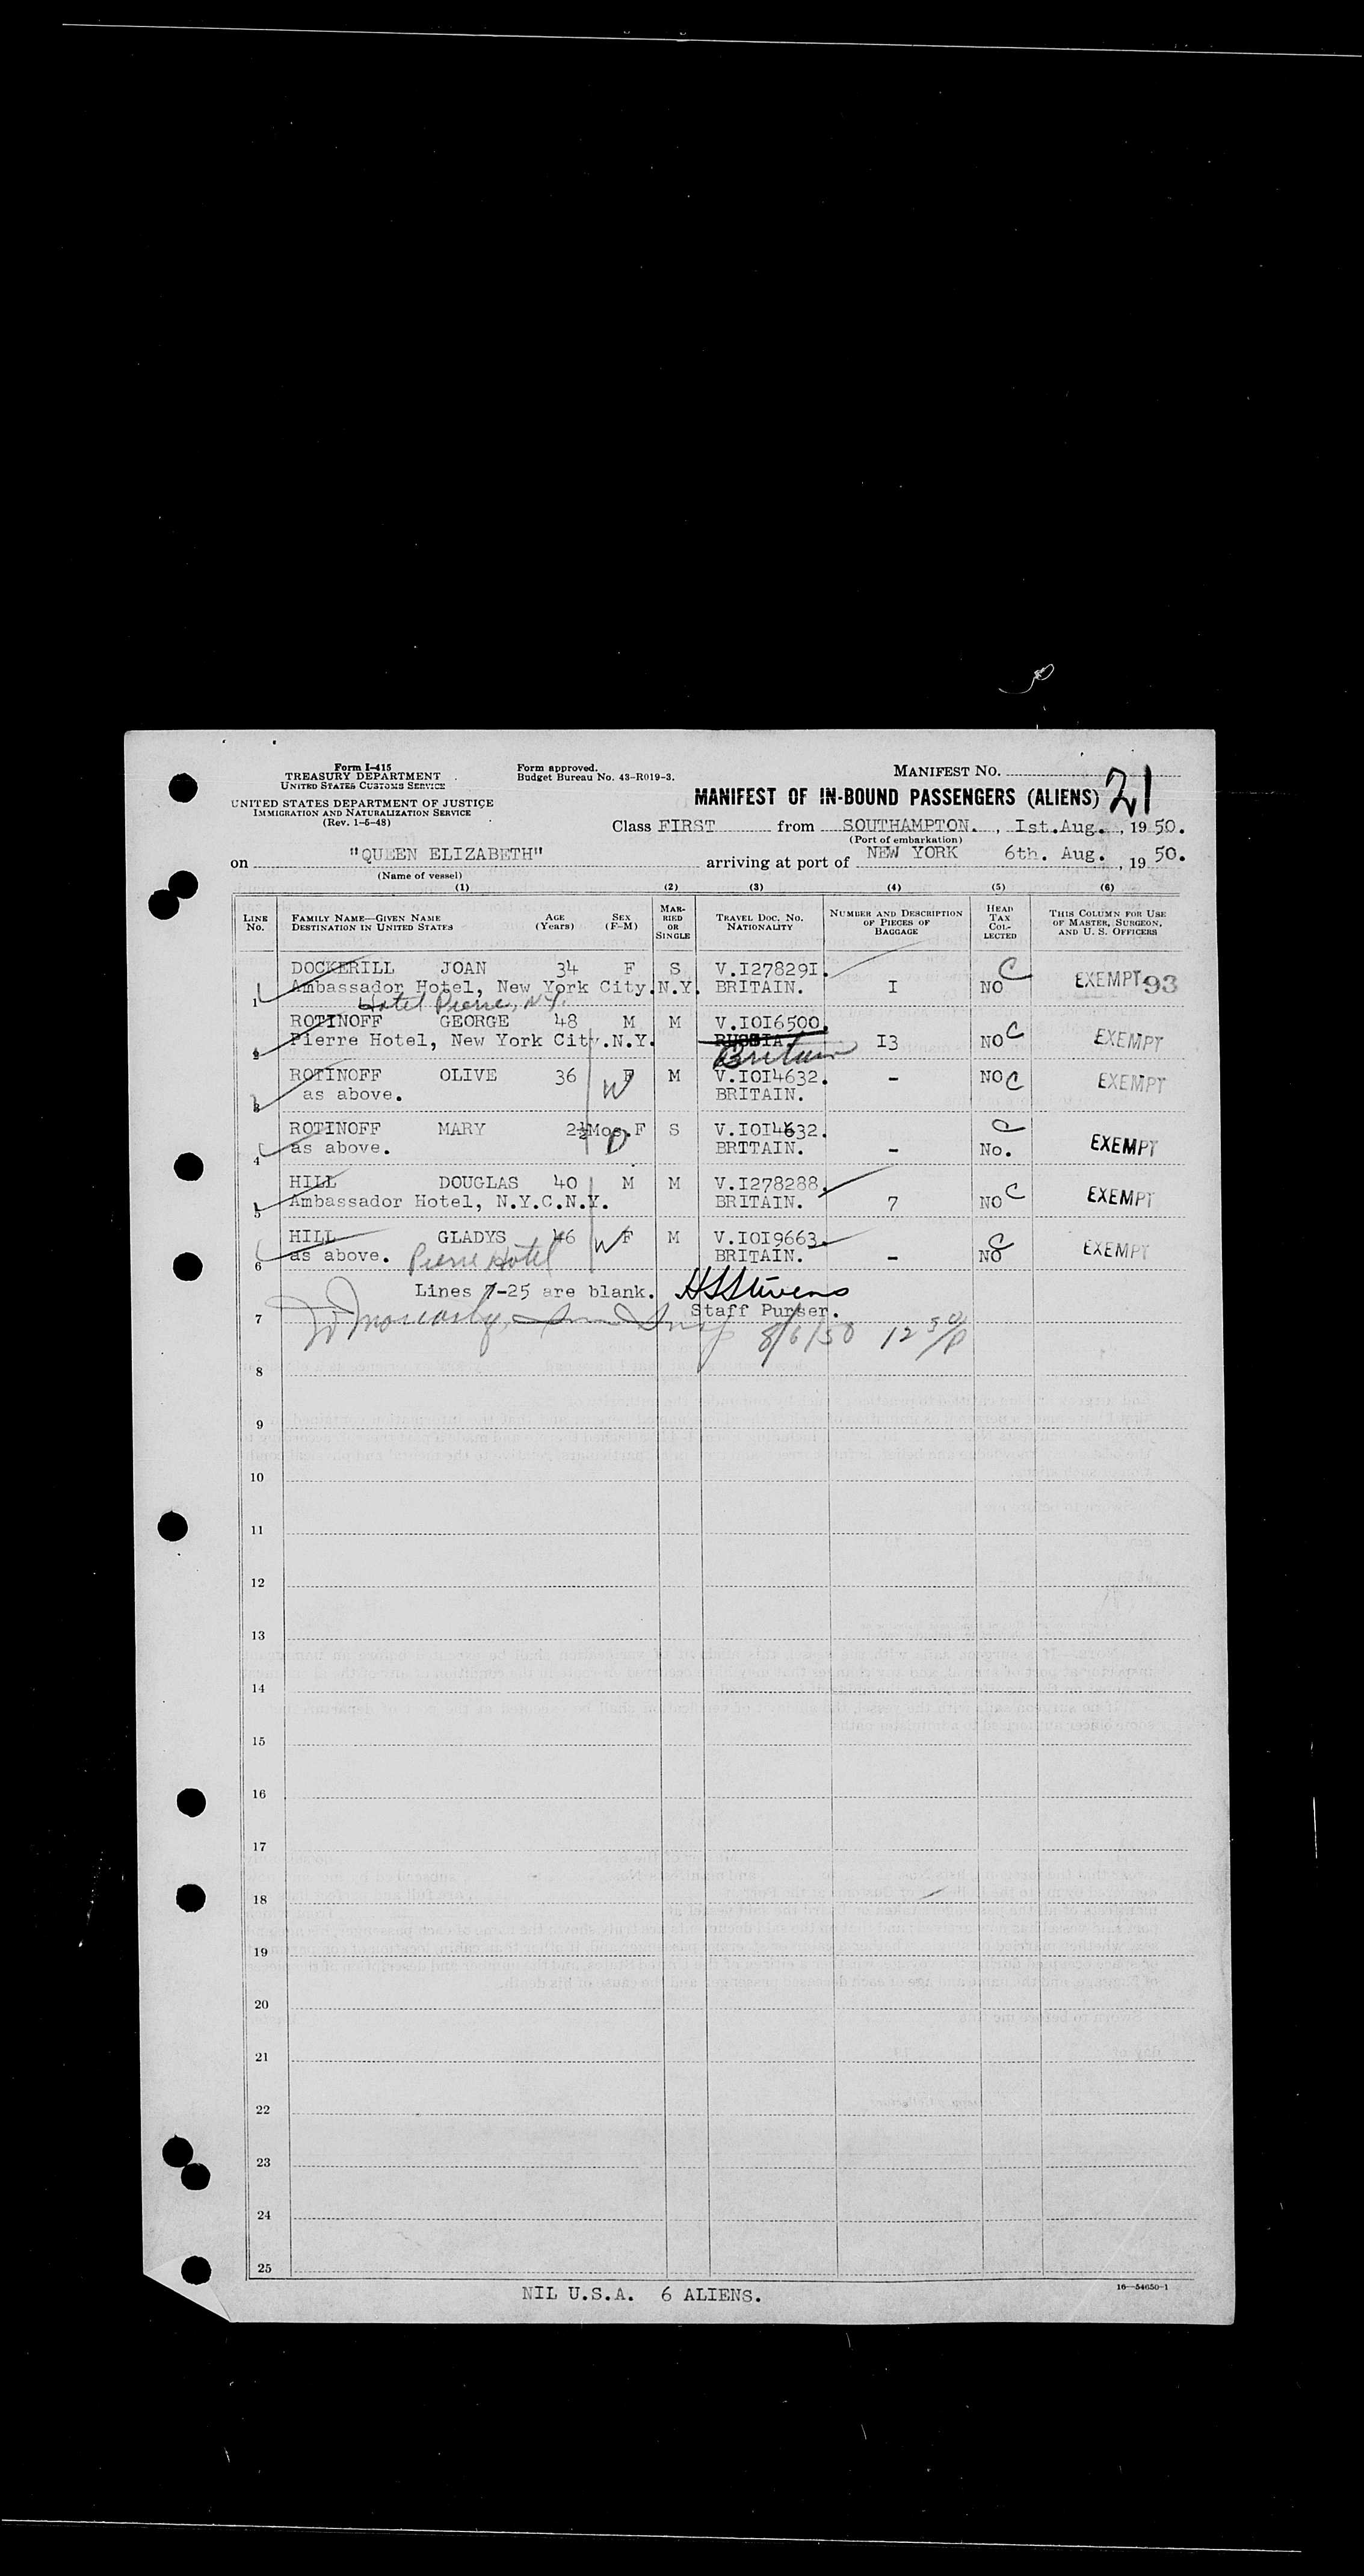 Form I-415
TREASURY DEPARTMENT
UNITED STATES CUSTOMS SERVICE
UNITED STATES DEPARTMENT OF JUSTICE
IMMIGRATION AND NATURALIZATION SERVICE
(Rev. 1-5-48)
Form approved.
Budget Bureau No. 43-R019-3.
MANIFEST NO.
21
MANIFEST OF IN-BOUND PASSENGERS (ALIENS)
Class FIRST from SOUTHAMPTON. , 1st.Aug. , 19 50.
(Port of embarkation)
on "QUEEN ELIZABETH" arriving at port of NEW YORK 6th. Aug. , 19 50.
(Name of vessel)
(1) (2) (3) (4) (5) (6)
LINE NO. FAMILY NAME—GIVEN NAME DESTINATION IN UNITED STATES AGE (Years) SEX (F-M) MARRIED OR SINGLE TRAVEL DOC. NO. NATIONALITY NUMBER AND DESCRIPTION OF PIECES OF BAGGAGE HEAD TAX COLLECTED THIS COLUMN FOR USE OF MASTER, SURGEON, AND U. S. OFFICERS
DOCKERILL JOAN 34 F S V.I27829I. C
1 Ambassador Hotel, New York City.N.Y. BRITAIN. I NO EXEMPT 93
Hotel Pierre, N.Y.
ROTINOFF GEORGE 48 M M V.IOI6500.
2 Pierre Hotel, New York City.N.Y. RUSSIA. I3 NO C EXEMPT
Britain
ROTINOFF OLIVE 36 F M V.IOI4632. - NO C EXEMPT
3 as above. W BRITAIN.
ROTINOFF MARY 2½Mos.F S V.IOI4632. C
4 as above. D BRITAIN. - No. EXEMPT
HILL DOUGLAS 40 M M V.I278288.
5 Ambassador Hotel, N.Y.C.N.Y. BRITAIN. 7 NO C EXEMPT
HILL GLADYS 46 W F M V.IOI9663. C
6 as above. Pierre Hotel BRITAIN. - NO EXEMPT
Lines 7-25 are blank. HSStevens
7 Staff Purser.
8/6/50 12 30 P
8
9
10
11
12
13
14
15
16
17
18
19
20
21
22
23
24
25
NIL U.S.A. 6 ALIENS.
16—54650-1